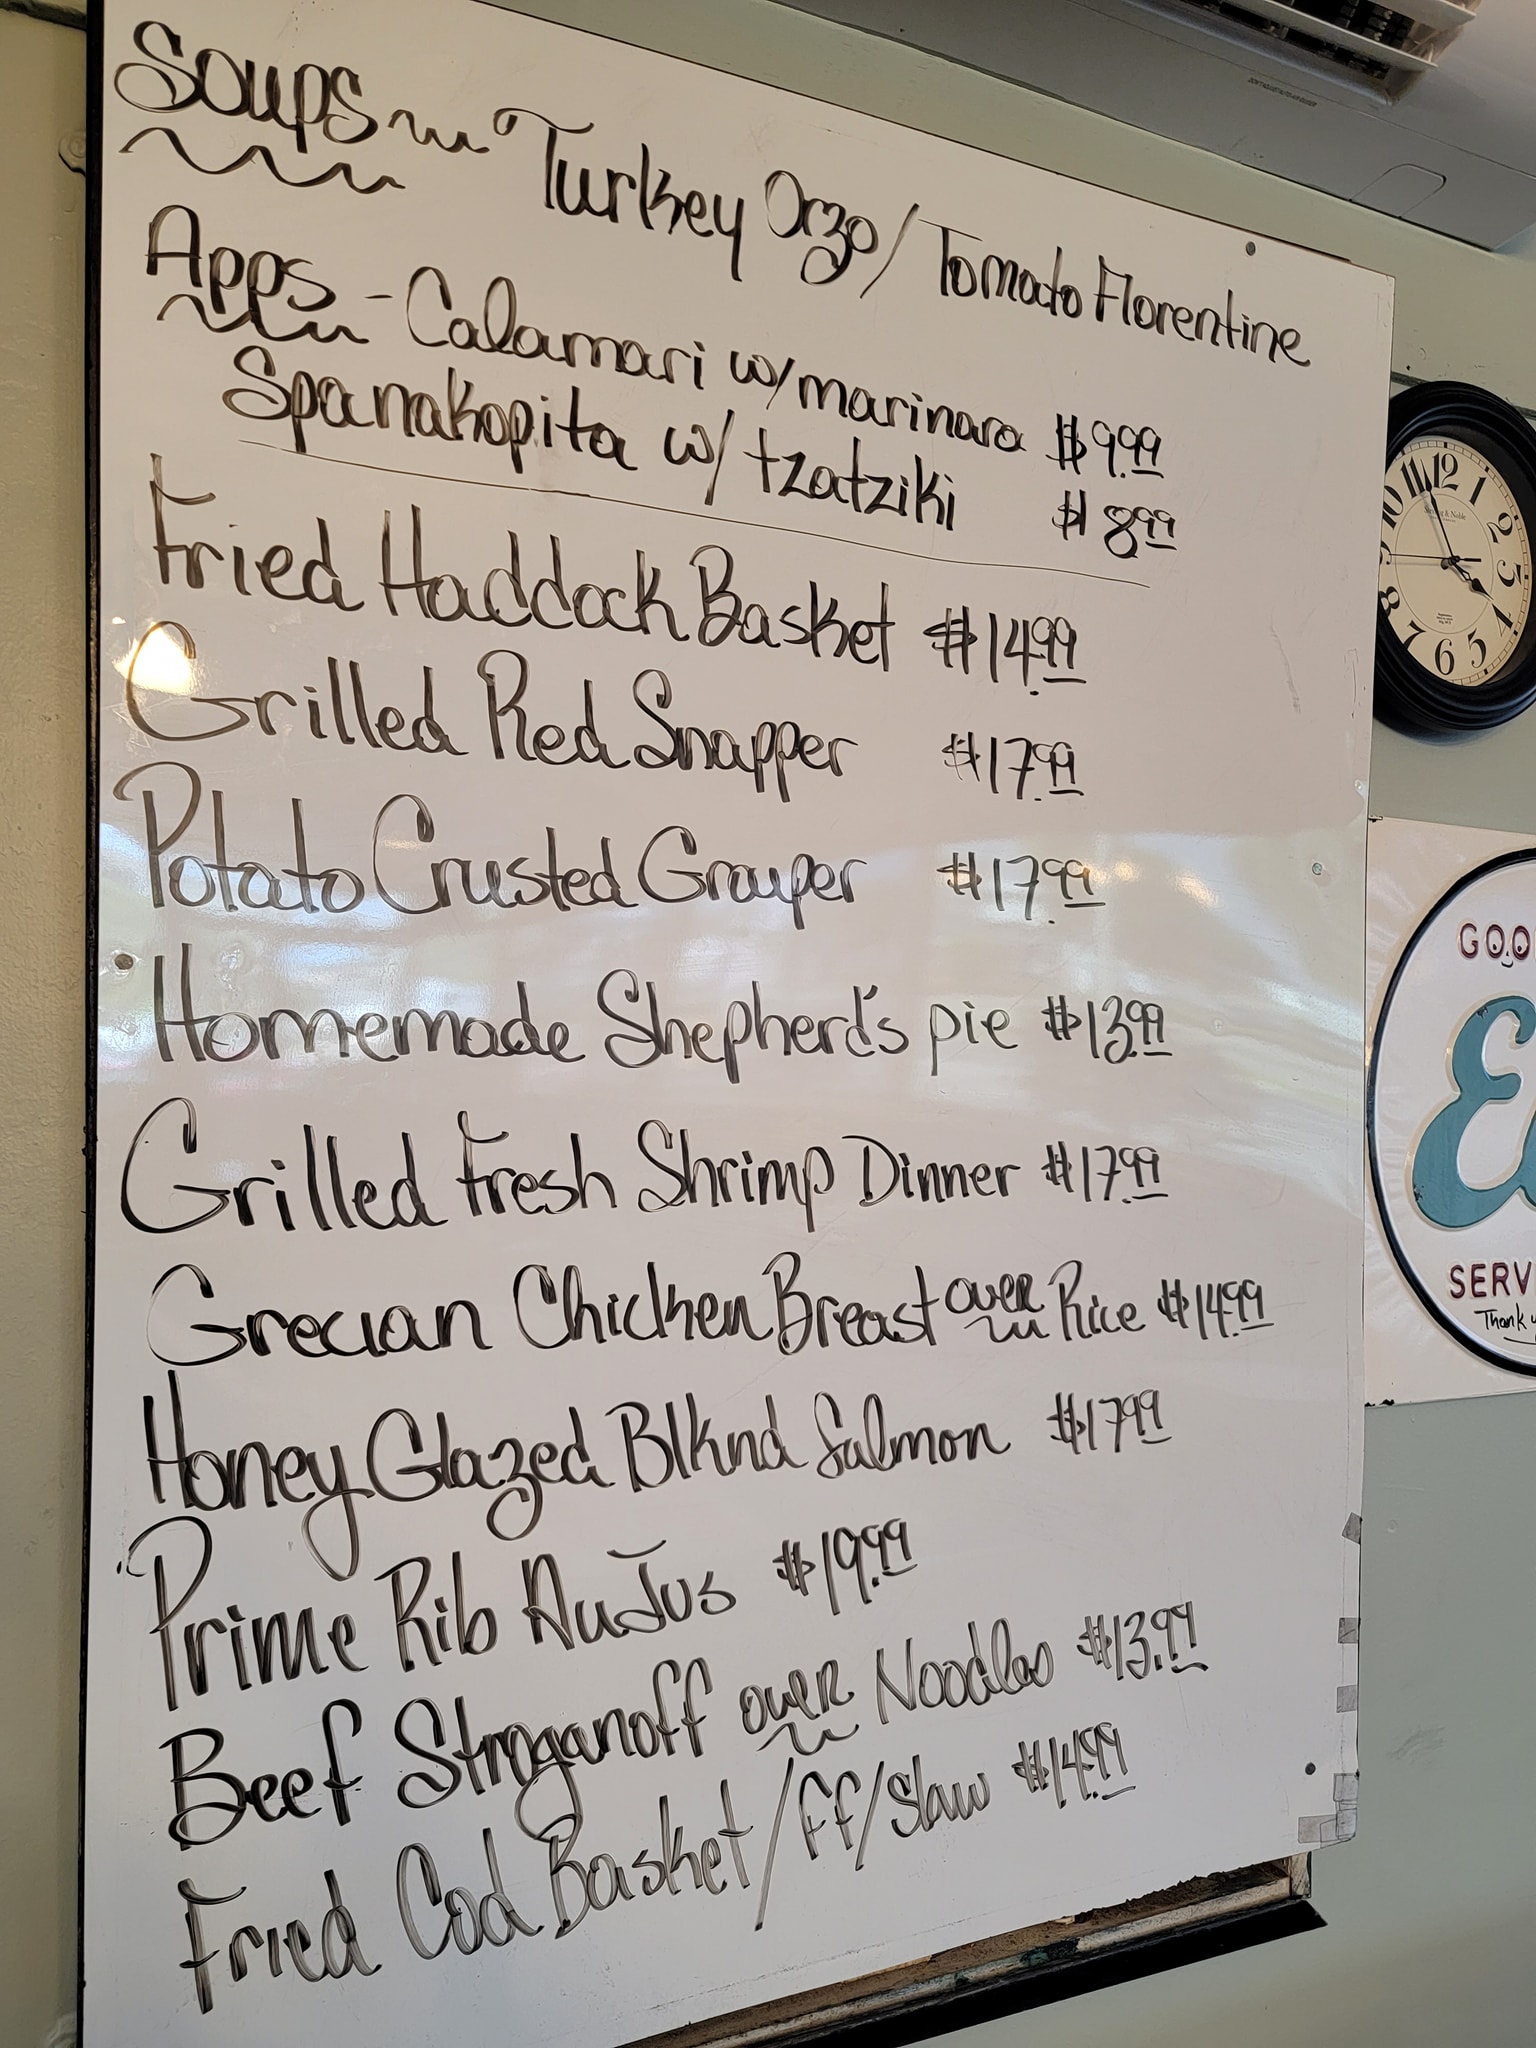 Soups ~ Turkey Orzo / Tomato Florentine
Apps - Calamari w/ marinara $9.99
Spanakopita w/ tzatziki $8.99
Fried Haddock Basket $14.99
Grilled Red Snapper $17.99
Potato Crusted Grouper $17.99
Homemade Shepherd's pie $13.99
Grilled Fresh Shrimp Dinner $17.99
Grecian Chicken Breast over Rice $14.99
Honey Glazed Blknd Salmon $17.99
Prime Rib AuJus $19.99
Beef Stroganoff over Noodles $13.99
Fried Cod Basket/ff/slaw $14.99
11 12 1
10 2
9 3
8 4
7 6 5
GOO
E
SERV
Thank y